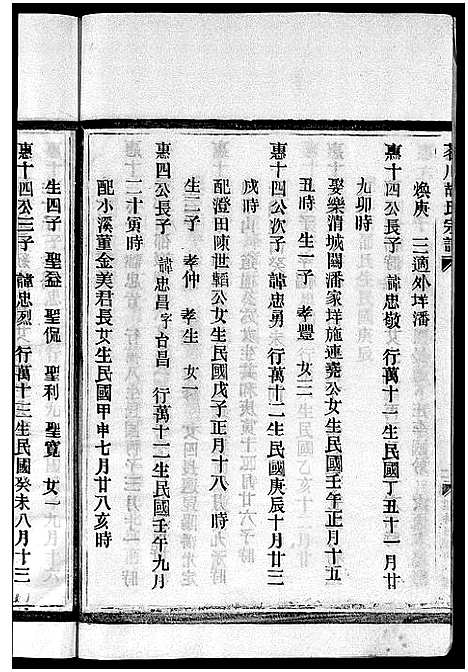 煥庚 三適外垟潘
惠十四公長子 諱忠敬 行萬十 生民國丁丑十一月廿
九卯時
娶樂清城關潘家垟施連堯公女生民國壬午正月十五
丑時 生一子 孝豐 女三
惠十四公次子 諱忠勇 行萬十二生民國庚辰十月廿三
戌時
配澄田陳世韜公女生民國戊子正月十八 時
生二子 孝仲 孝生 女一
惠四公長子 諱忠昌字台昌 行萬十二生民國壬午九月
二十寅時
配水溪董金美君長女生民國甲申七月廿八亥時
生四子 聖益 聖侃 聖利 聖寬 女一
惠十四公三子 諱忠烈 行萬十三生民國癸未八月十三